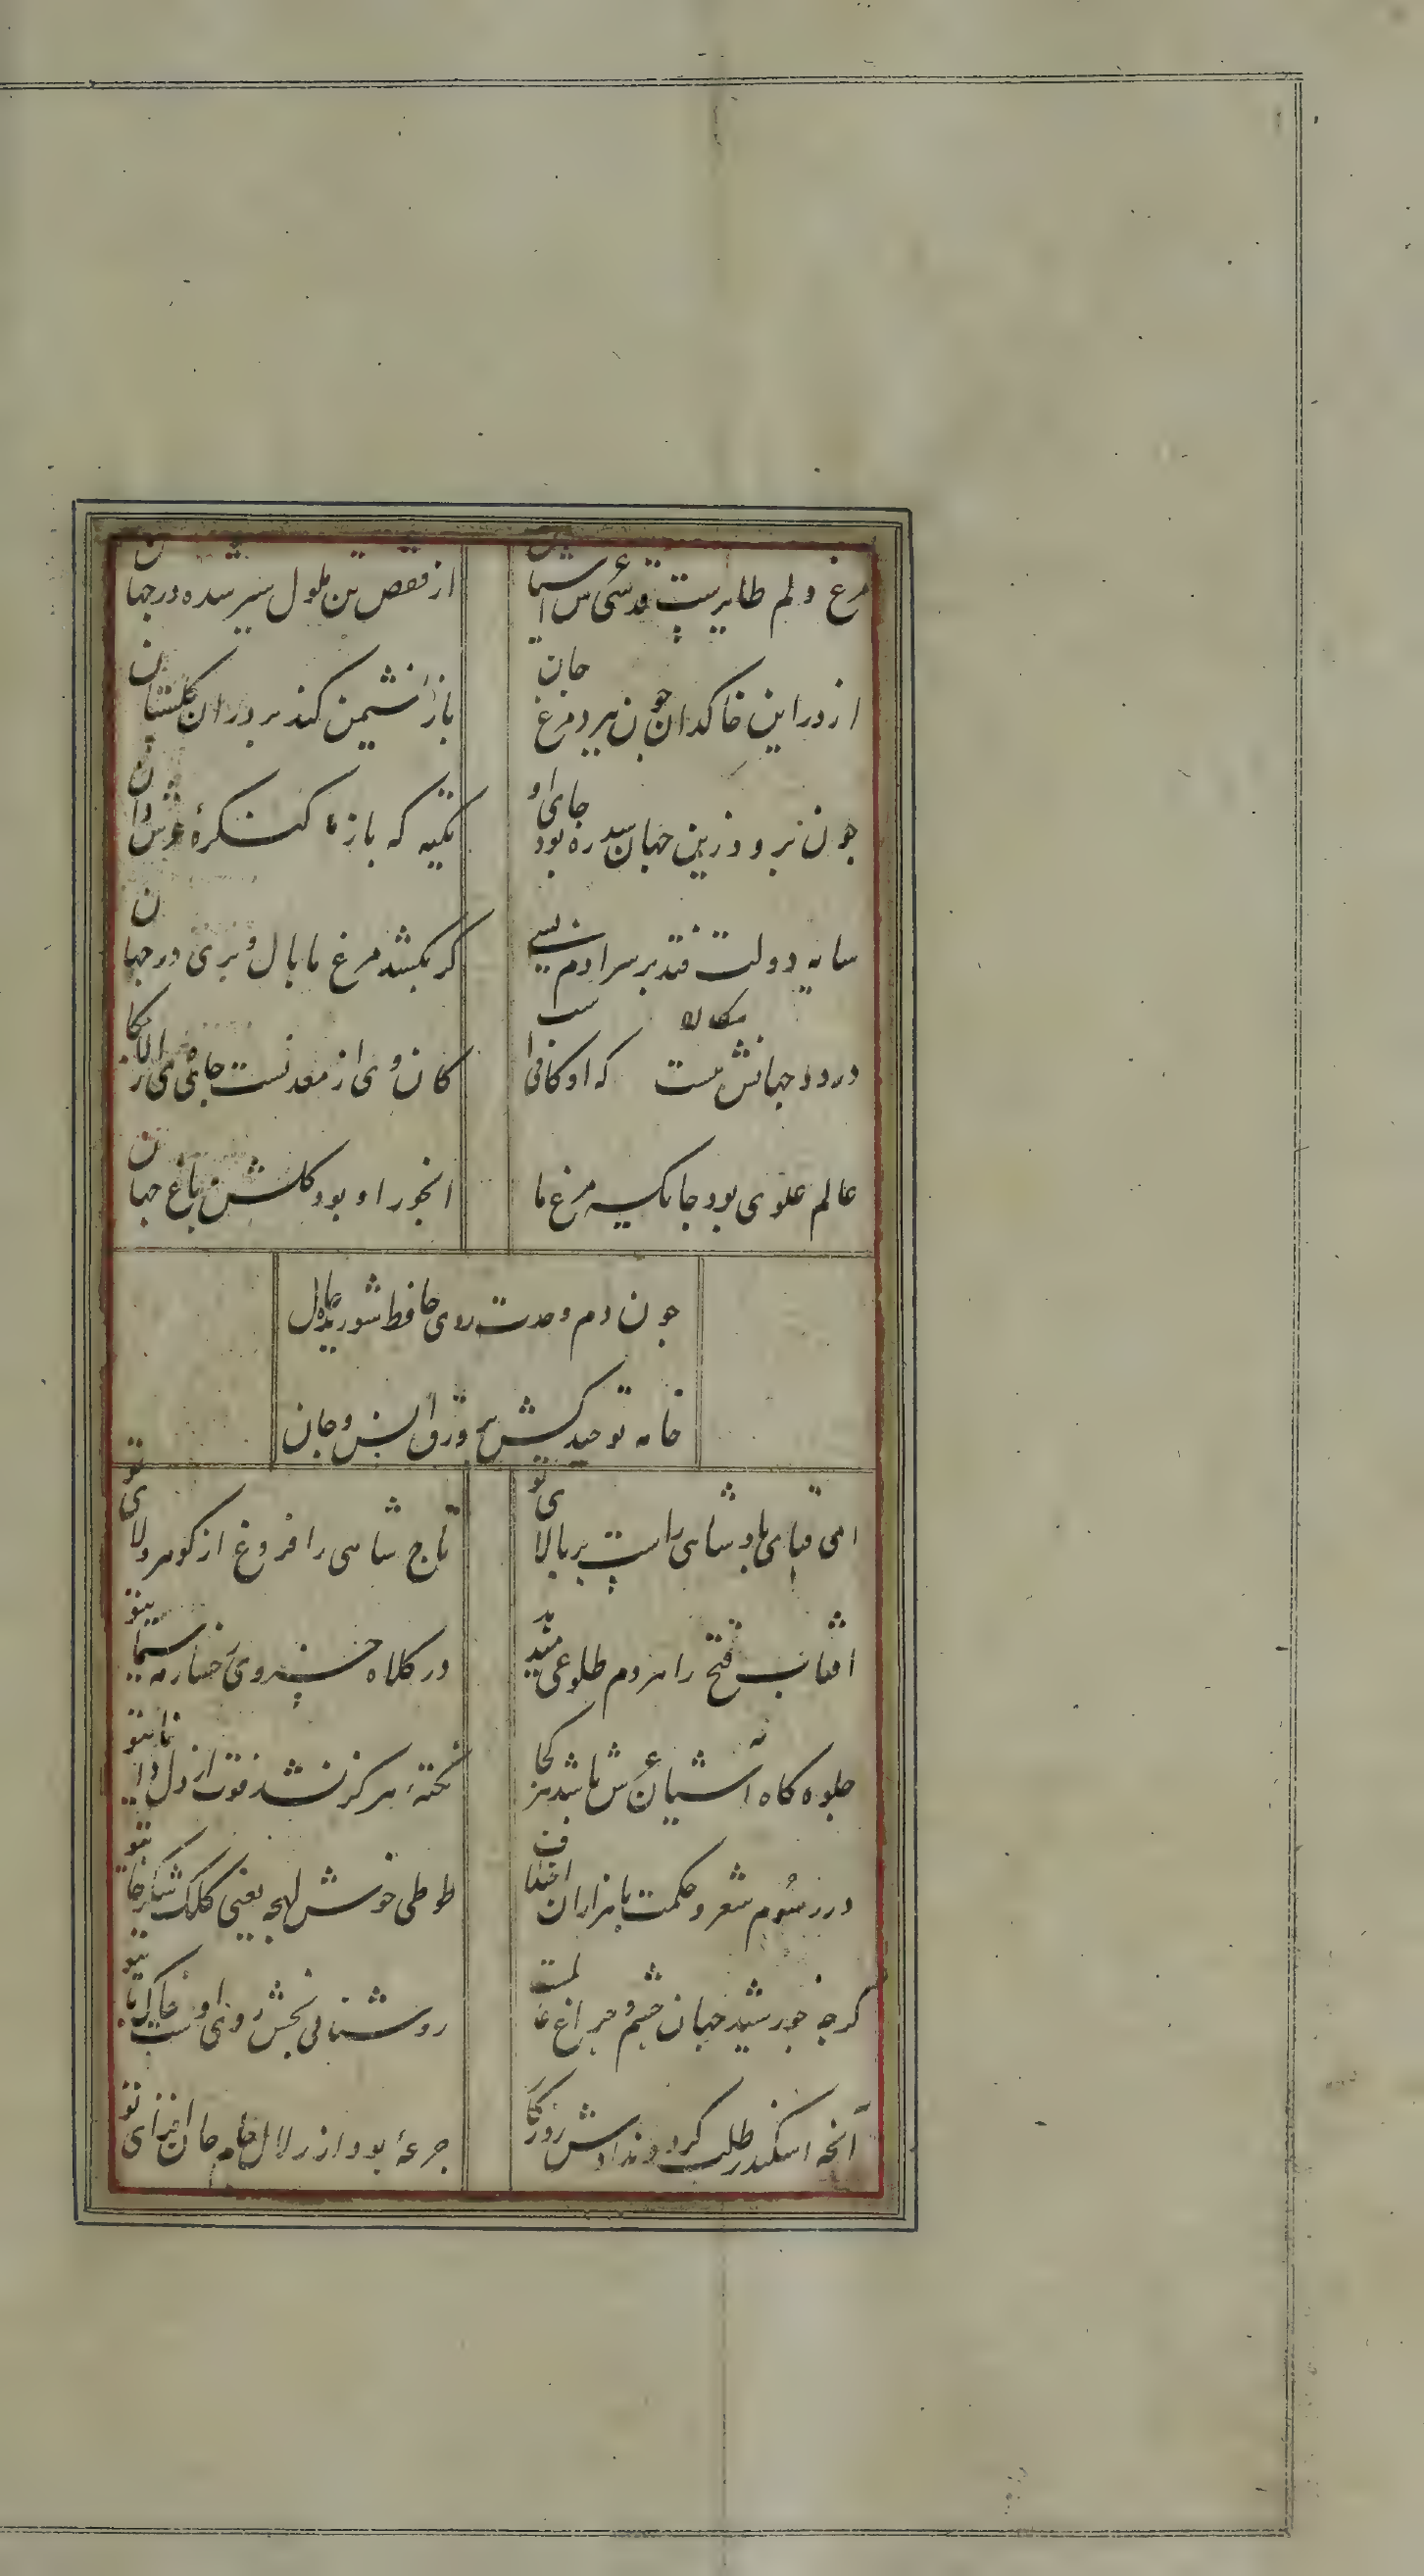 مرغ دلم طایریست قدسی عرش آشیان
از قفص تن ملول سیر شده در جهان
از در این خاکدان چون بپرد مرغ جان
باز نشیمن کند بر در ان کلستان
چون بپرد زین جهان سدره بود جای او
تکیه که باز ما کنکرهٔ عرش دان
سایه دولت فتد بر سر ادم بسی
کر بکشد مرغ ما بال و بری در جهان
در دو جهانش مکان نیست که او کانی است
کان وی از معدنست جای وی از لامکان
عالم علوی بود جایکه مرغ ما
ابخور او بود کلشن باغ جهان
چون دم وحدت زدی حافظ شوریده حال
خامه توحید کش بر ورق انس و جان
ای قبای پادشاهی راست بر بالای تو
تاج شاهی را فروغ از کوهر والای تو
افتاب فتح را هر دم طلوعی میدهد
در کلاه خسروی رخسار مه سیمای تو
جلوه کاه
نکته هرکز نشد فوت از دل دانای تو
در رسوم شعر و حکمت با هزاران اختلاف
طوطی خوش لهجه یعنی کلک شکرخای تو
کرچه خورشید جهان چشم و چراغ عالمست
روشنائی بخش روی اوست خاک پای تو
آنچه اسکندر طلب کرد و ندادش روزکار
جرعهٔ بود از زلال جام جان افزای تو